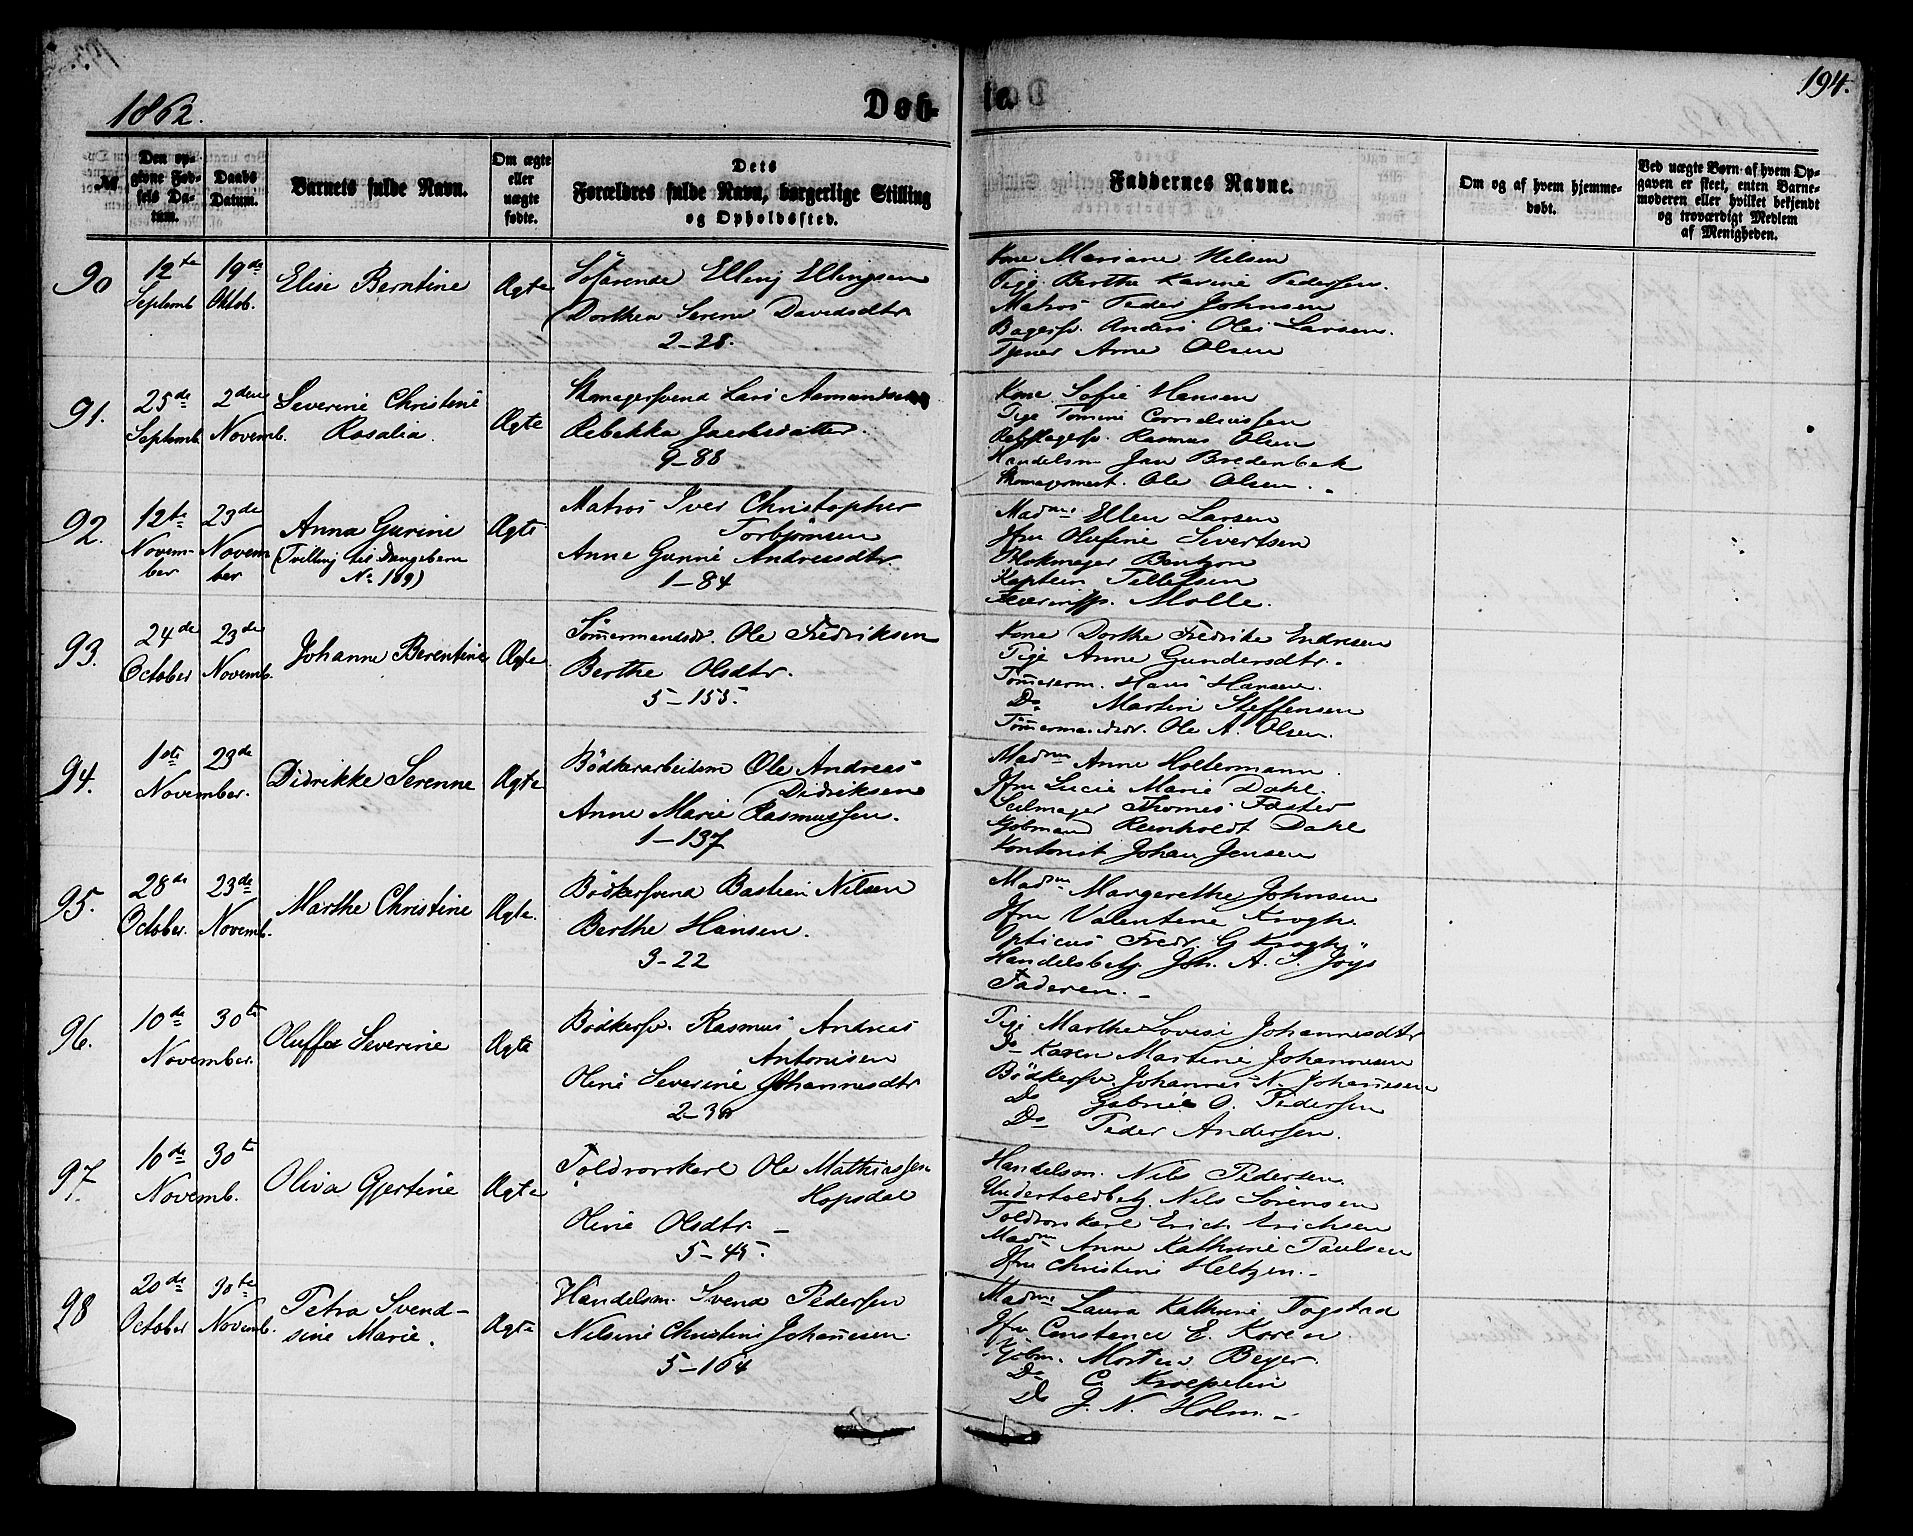 194.
1862.
Døb-
te.
№
Den op-
givne Fød-
sels Da-
tum.
Daabs
Datum.
Barnets fulde Navn.
Om ægte
eller
uægte
fødte.
Dets
Forældres fulde Navn, borgerlige Stilling
og Opholdssted.
Faddernes Navne.
Om og af hvem hjemme-
døbt.
Ved uægte Børn af hvem Op-
gaven er skeet, enten Barne-
moderen eller hvilket bekjendt
og troværdigt Medlem
af Menigheden.
90
12te
Septemb
19de
Oktob.
Elise Berntine
Ægte
Söfarende Elling Ellingsen
Dorthea Serene Davidsdtr
2-28.
Kone Mariane Nilsen
Pige Berthe Karine Pedersen.
Matros Peder Johnsen
Bagersv. Anders Olai Larsen.
Arne Olsen
91.
25de
Septemb.
2den
Novemb.
Severine Christene
Rosalia.
Ægte
Skomagersvend Lars Aamundsen
Rebekka Jacobsdatter.
9-88
Kone Sofie Hansen
Pige Tomine Cornelius­sen
Rebslagersv. Rasmus Olsen
Handelsm Jan Bredenbek
Skomagermest. Ole Olsen.
92.
12te
Novem-
ber
23de
Novem
ber
Anna Gurine
(Tvilling til Drengebarn
No 109)
Ægte
Matros Iver Christopher
Torbjørnsen
Anne Gunne Andreasdtr.
1-84
Madme Ellen Larsen
Jfru Olufine Sivertsen
Blokmager Bentzon
Kaptein Tellefsen
Molle.
93.
24de
October
23de
Novemb.
Johanne Berentine
Ægte.
Tömmermandsdr. Ole Fredriksen
Berthe Olsdtr.
5-155.
Kone Dorthe Fredrike Endresen
Pige Anne Gundersdtr.
Tömmerm. Hans Hansen.
Do Martin Steffensen
Tömmermandsdr. Ole A. Olsen.
94.
1ste
November.
23de
Didrikke Serenne
Ægte
Bödkerarbeidsm Ole Andreas
Didriksen
Anne Marie Rasmussen.
1-137
Madme Anne Holtermann.
Jfru Lucie Marie Dahl.
Seilmager Thomas Faster
Kjöbmand Reinholdt Dahl
Kontorist Johan Jensen
95.
28de
October.
23de
Novemb.
Marthe Christine
Ægte.
Bödkersvend Bastian Nilsen
Berthe Hansen.
3-22
Madme Margerethe Johnsen
Jfru Valentine Krogh.
Opticus Fredr. G Krogh
Handelsbetj. Joh. A. S. Joys
Faderen.
96.
10de
November.
30te
Oluffa Severine
Ægte
Bödkersv. Rasmus Andreas
Antonisen
Oline Severine Johannesdtr
2-38
Pige Marthe Lovise Johannesdtr
Do Karen Martine Johannesen
Bödkersv. Johannes N. Johannesen
Do Gabriel O. Pedersen
Do Peder Andersen.
97.
10de
Novemb.
30te
Oliva Gjertine
Ægte
Toldrorskarl Ole Mathiassen
Hopsdal
Oline Olsdtr.
5-45.
Handelsm. Nils Pedersen.
Undertoldbetj. Nils Sörensen
Toldrorskarl Erich Erichsen
Madme Anne Kathrine Paulsen
Jfru Christine Heltzen.
98
20de
October
30te
Novemb.
Petra Svend-
sine Marie.
Ægte
Handelsm. Svend Pedersen
Nilsine Christine Johannesen.
5-164
Madme Laura Kathrine Fogstad
Jfru Constance E. Koren.
Kjöbm. Morten Beyer.
Do C. Kroepelin
Do J. N. Holm.